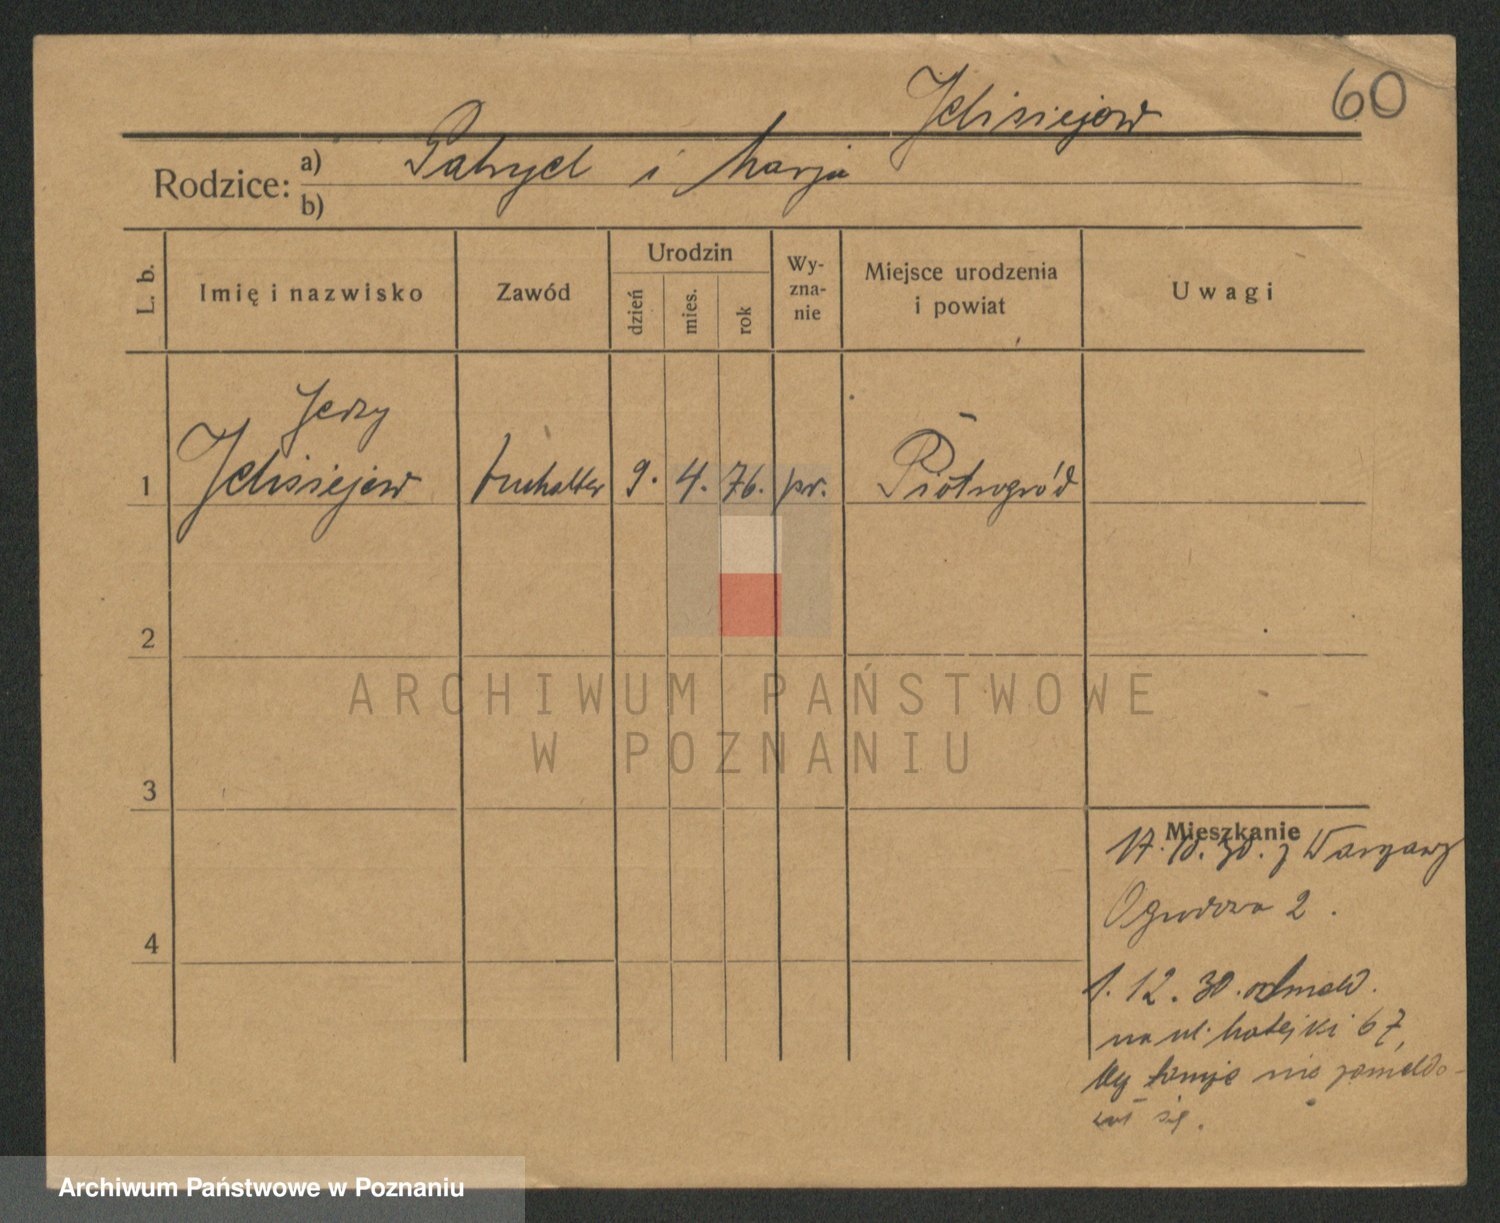 60
Jelisiejew
Rodzice: a) Patrycl i Marja
b)
L. b.
Imię i nazwisko
Zawód
Urodzin
dzień
mies.
rok
Wy-
zna-
nie
Miejsce urodzenia
i powiat
Uwagi
Jerzy
1 Jelisiejew buchalter 9. 4. 76. pr. Piotrogród
2
3
4
Mieszkanie
17. 10. 30. z Warszawy
Ogrodowa 2.
1. 12. 30. odmeld.
na ul. Matejki 67,
tamże nie zameldo-
wał się.
ARCHIWUM PAŃSTWOWE
W POZNANIU
Archiwum Państwowe w Poznaniu